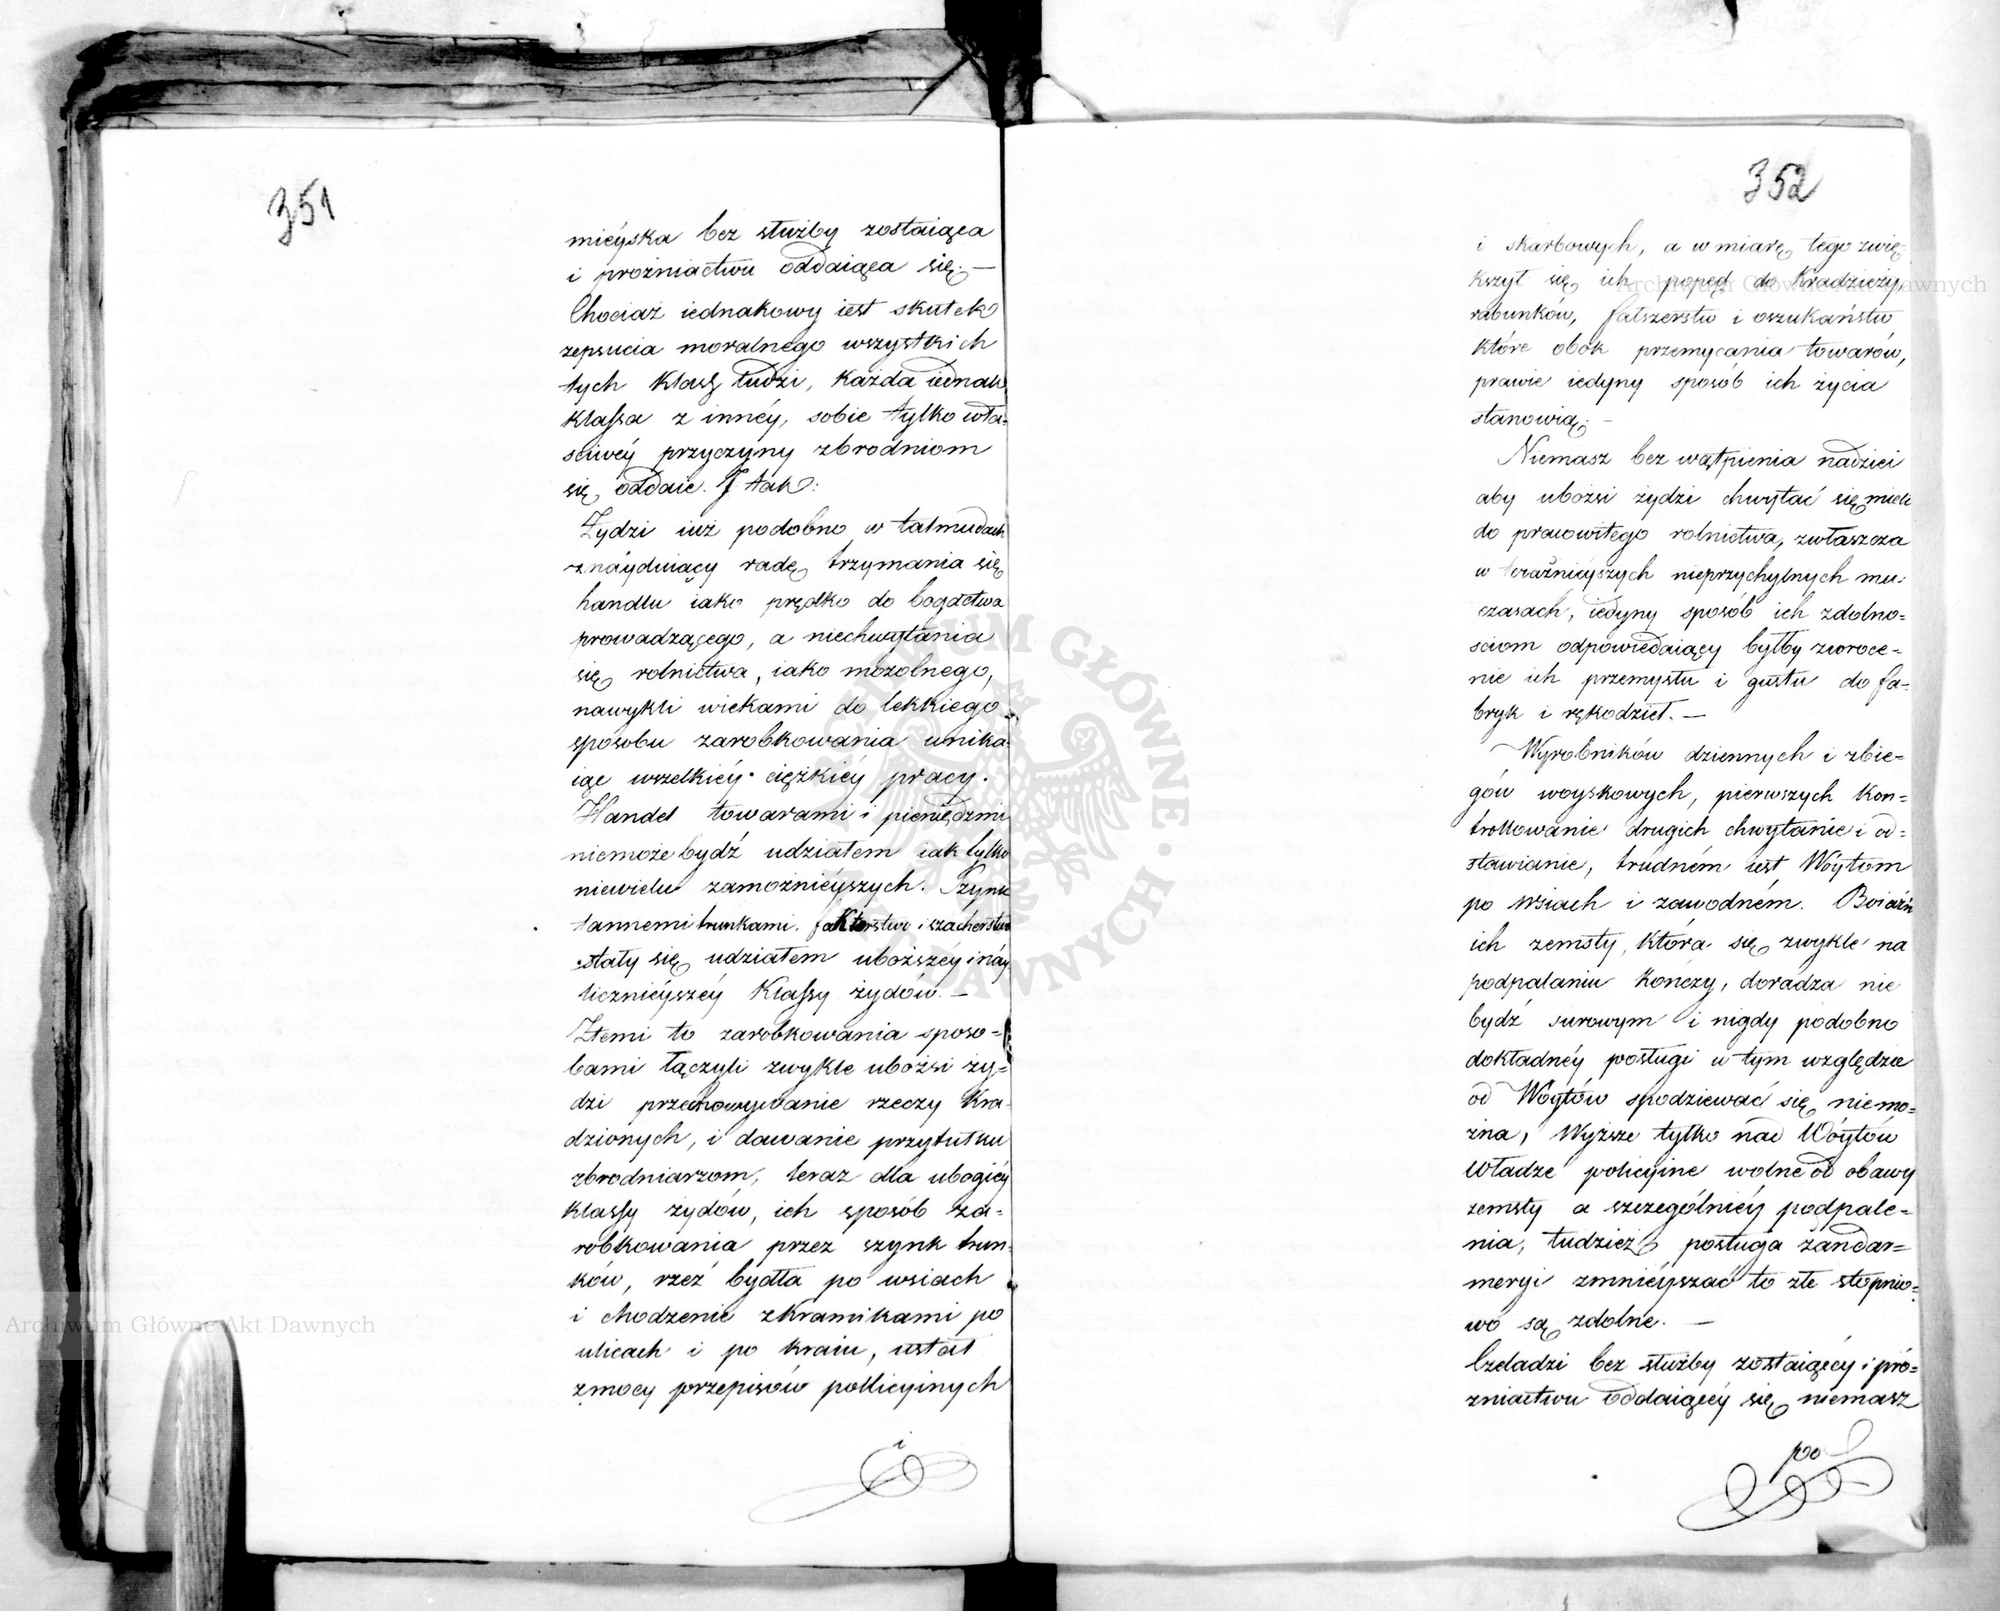 351
mieyska bez służby zostaiąca
i prożniactwu oddaiąca się. —
Chociaż iednakowy iest skutek
zepsucia moralnego wszystkich
tych klass ludzi, każda iednak
klassa z innéy, sobie tylko wła-
sciwéy przyczyny zbrodniom
się oddaie. I tak:
Żydzi iuż podobno w talmudach
znayduiący radę trzymania się
handlu iako prędko do bogactwa
prowadzącego, a niechwytania
się rolnictwa, iako mozolnego,
nawykli wiekami do lekkiego
sposobu zarobkowania unika
iąc wszelkiéy ciężkiéy pracy.
Handel towarami i pieniędzmi
niemoże bydź udziałem iak tylko
niewielu zamożnieyszych. Szynk
tannemi trunkami, faktorstwo i szacherstwo
stały się udziałem uboższéy i náy
licznieyszéy Klassy żydów. —
Złemi to zarobkowania sposo-
bami łączyli zwykle ubożsi ży-
dzi przechowywanie rzeczy kra-
dzionych, i dawanie przytułku
zbrodniarzom, teraz dla ubogiéy
klassy żydów, ich sposób za-
robkowania przez szynk trun-
ków, rzeź bydła po wsiach
i chodzenie z kramikami po
ulicach i po kraiu, ustał
z mocy przepisów policyinych
i
352
i skarbowych, a w miarę tego zwię-
kszył się ich popęd do kradzieży,
rabunków, fałszerstw i oszukaństw
które obok przemycania towarów,
prawie iedyny sposób ich życia
stanowią. —
Niemasz bez wątpienia nadziei
aby ubożsi żydzi chwytać się mieli
do prawowitego rolnictwa, zwłaszcza
w teraźnieyszych nieprzychylnych mu
czasach, iedyny sposób ich zdolno-
sciom odpowiedaiący byłby zwroce-
nie ich przemysłu i gustu do fa-
bryk i rękodzieł. —
Wyrobników dziennych i zbie-
gów woyskowych, pierwszych kon-
trollowanie drugich chwytanie i od-
stawianie, trudném iest Wóytom
po wsiach i zawodném. Boiaźń
ich zemsty, która się zwykle na
podpalaniu kończy, doradza nie
bydź surowym i nigdy podobno
dokładnéy posługi w tym względzie
od Wóytów spodziewać się niemo-
żna, Wyższe tylko nad Wóytów
Władze policyine wolne od obawy
zemsty a szczególniéy podpale-
nia, tudzież posługa żandar-
meryi zmnieyszać to złe stopnio-
wo są zdolne. —
Czeladzi bez służby zostaiącéy i pró-
żniactwu oddaiącéy się niemasz
po
Archiwum Główne Akt Dawnych
Archiwum Główne Akt Dawnych
ARCHIWUM GŁÓWNE AKT DAWNYCH